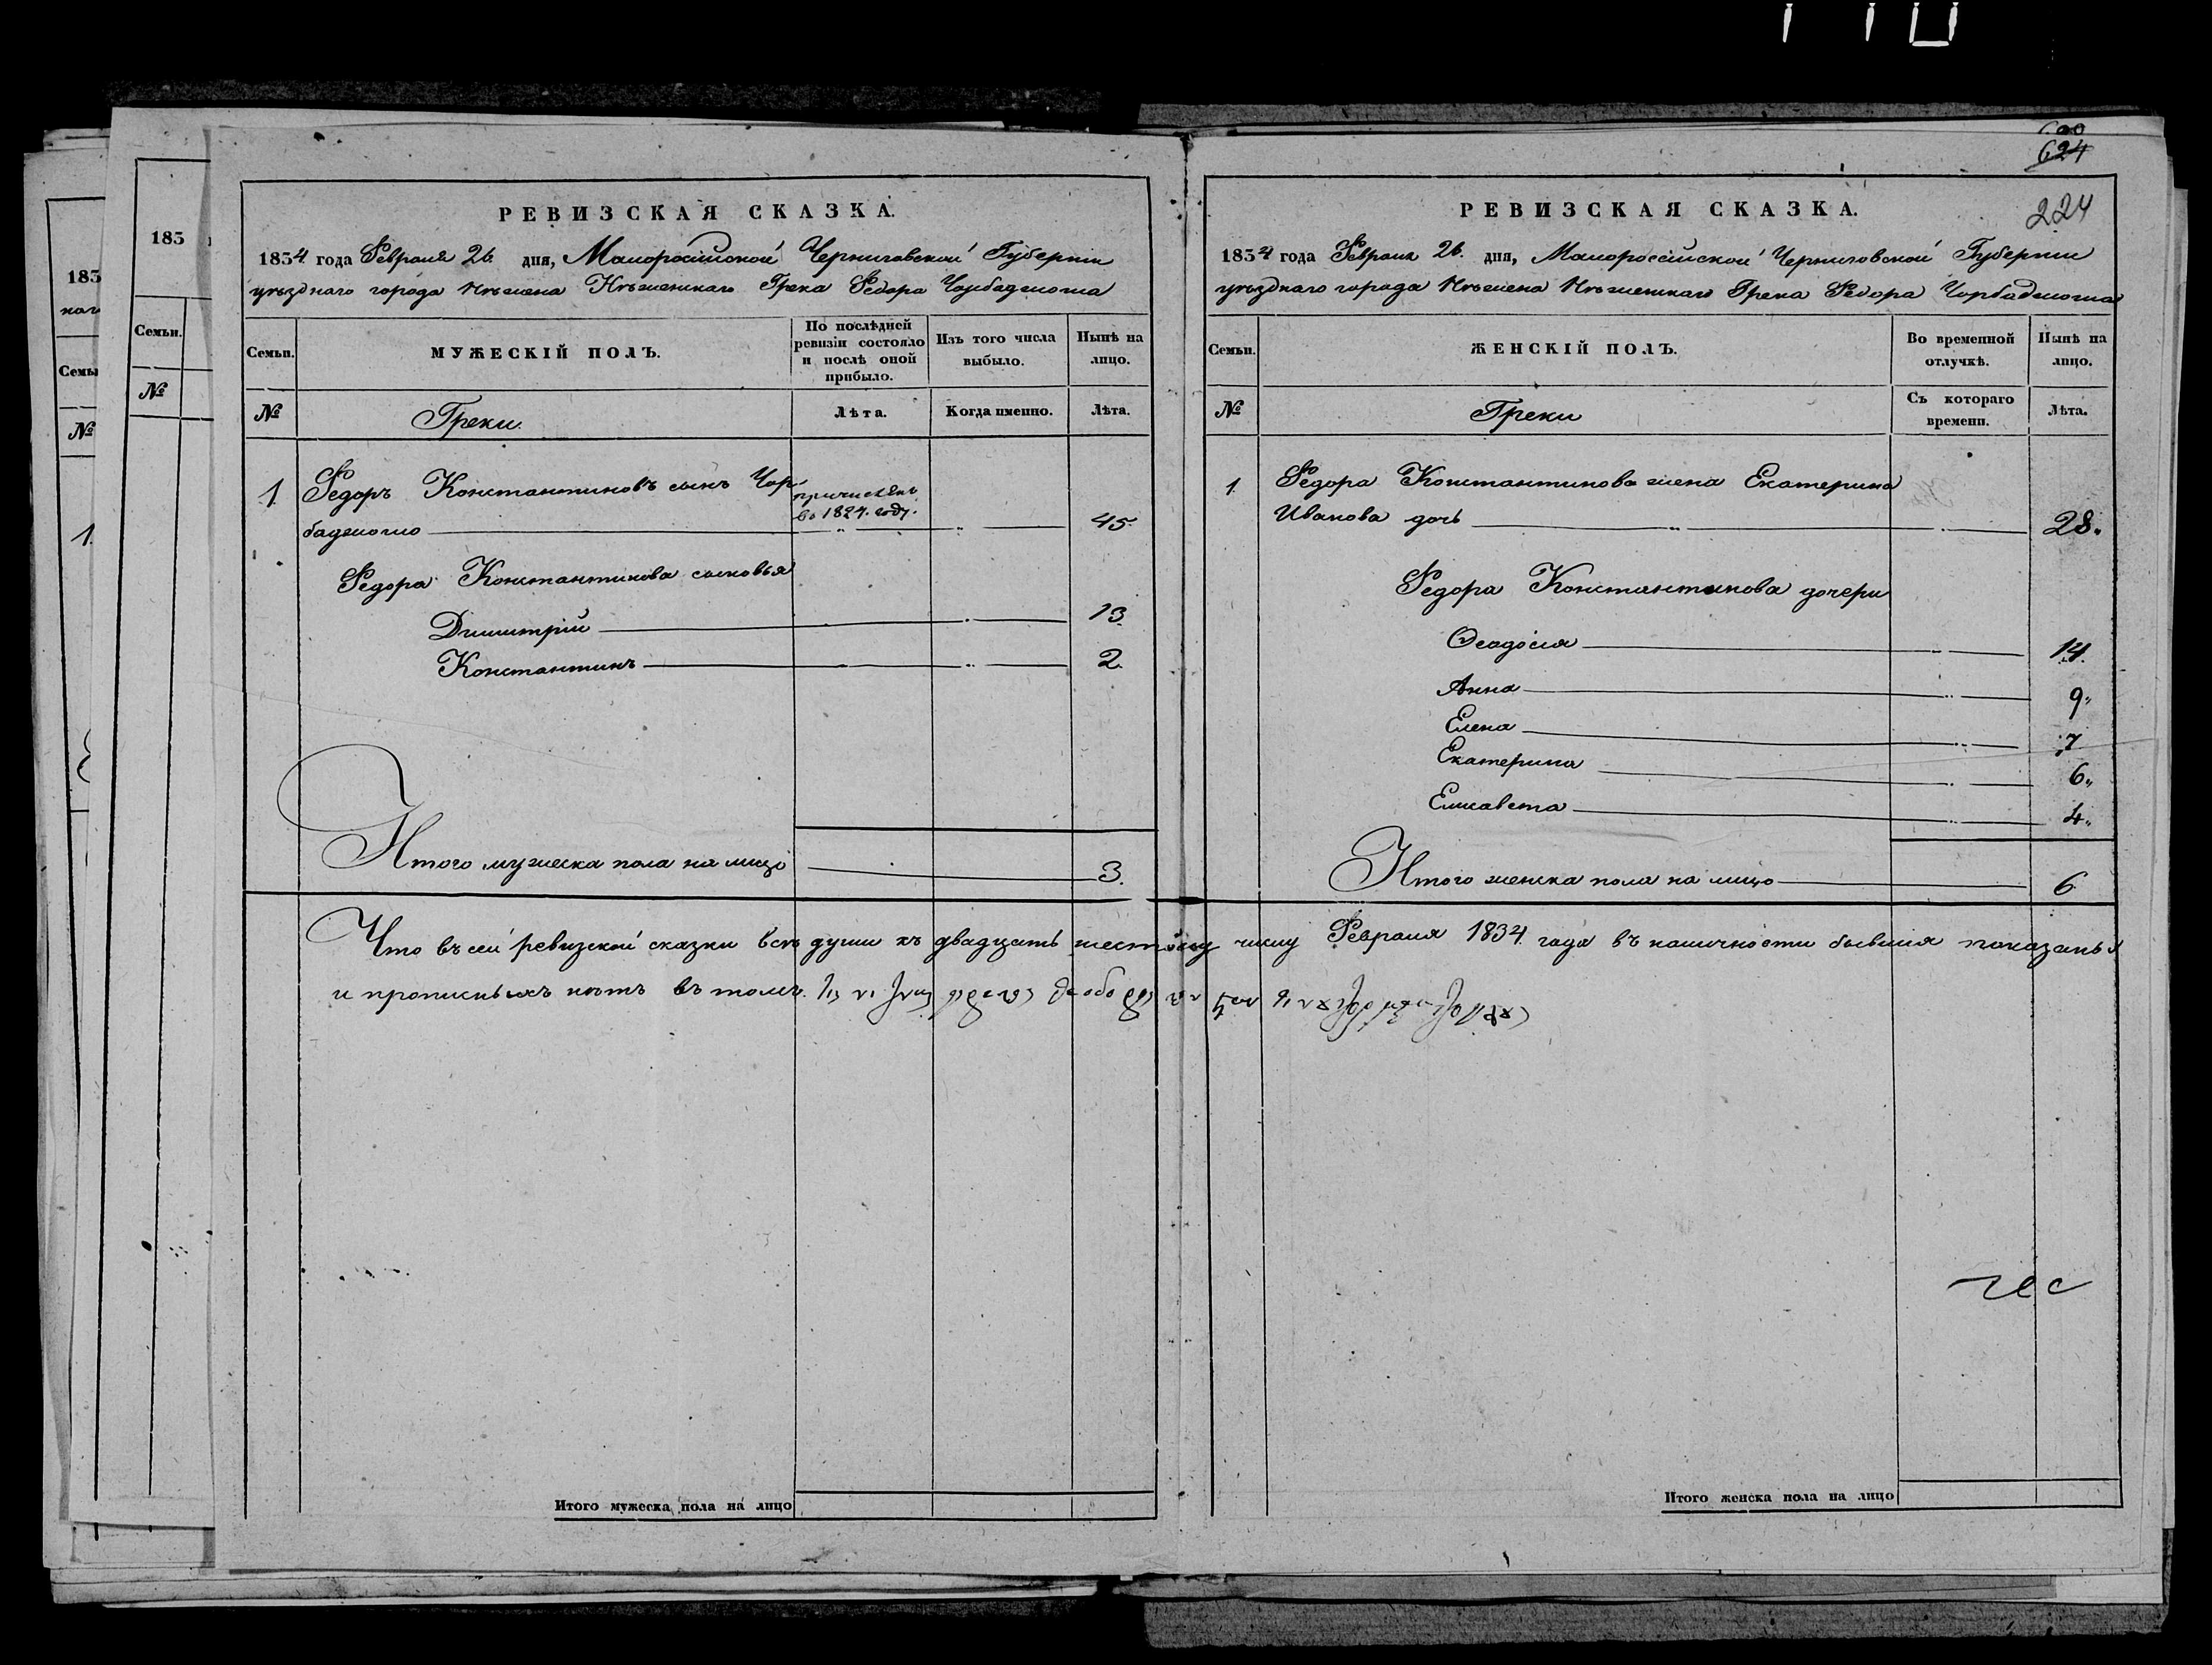 РЕВИЗСКАЯ СКАЗКА.
1834 года Февраля 26 дня, Малоросійской Черниговской Губерніи
уѣзднаго города Нѣжена Нѣженскаго Грека Федора Чорбаджогло
Семьи.
МУЖЕСКІЙ ПОЛЪ.
По послѣдней ревизіи состояло и послѣ оной прибыло.
Изъ того числа выбыло.
Нынѣ на лицо.
№
Греки.
Лѣта.
Когда именно.
Лѣта.
1 Федоръ Константиновъ сынъ Чор- причисленъ
баджогло во 1827. году. 45
Федора Константинова сыновья
Димитрій 13
Константинъ 2.
Итого мужеска пола на лицо 3.
Итого мужеска пола на лицо
620
624
224
РЕВИЗСКАЯ СКАЗКА.
1834 года Февраля 26. дня, Малоросейской Черниговской Губерніи
уѣзднаго города Нѣжена Нѣженскаго Грека Федора Чорбаджогла
Семьи.
ЖЕНСКІЙ ПОЛЪ.
Во временной отлучкѣ.
Нынѣ на лицо.
№
Греки
Съ котораго времени.
Лѣта.
1 Федора Константинова жена Екатерина
Иванова дочь 28.
Федора Константинова дочери
Ѳеодосія 14.
Анна 9
Елена 7
Екатерина 6
Елисавета 4
Итого женска пола на лицо 6
Что въ сей ревизской сказки всѣ души къ двадцать шестому числу Февраля 1834 года въ наличности бывшія показаны
и прописныхъ нѣтъ въ томъ
Итого женска пола на лицо
183
Семьи.
№
183
Семьи
№
1.